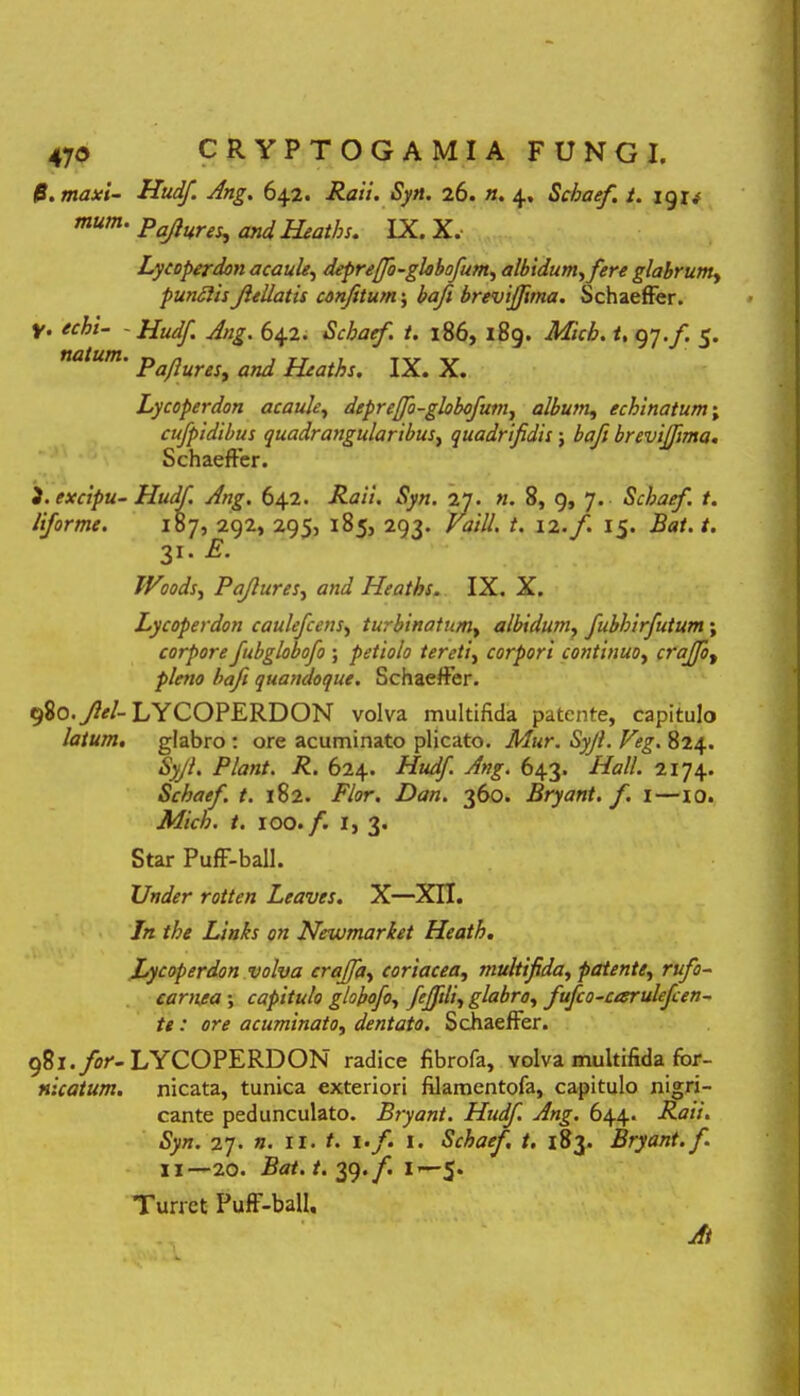 470 CRYPTOGAMIA FUNGI.
β. maxi- Hudſ. Ang. 642. Raii. Syn. 26. n. 4, Schaef. t. 191.
mum. Paſtures, and Heaths. IX. X.
Lycoperdon acaule, depreſſo-globoſum, albidum, fere glabrum,
punctis ſtellatis conſitum; baſi breviſſima. Schaeffer.
γ. echi- - Hudſ. Ang. 642. Schaef. t. 186, 189. Mich. t. 97. f. 5.
natum. Paſtures, and Heaths. IX. X.
Lycoperdon acaule, depreſſo-globoſum, album, echinatum;
cuſpidibus quadrangularibus, quadrifidis; baſi breviſſima.
Schaeffer.
δ. excipu- Hudſ. Ang. 642. Raii. Syn. 27. n. 8, 9, 7. Schaef. t.
liforme. 187, 292, 295, 185, 293. Vaill. t. 12. f. 15. Bat. t.
31. E.
Woods, Paſtures, and Heaths. IX. X.
Lycoperdon cauleſcens, turbinatum, albidum, ſubhirſutum;
corpore ſubgloboſo; petiolo tereti, corpori continuo, craſſo,
pleno baſi quandoque. Schaeffer.
980. ſtel- LYCOPERDON volva multifida patente, capitulo
latum. glabro: ore acuminato plicato. Mur. Syſt. Veg. 824.
Syſt. Plant. R. 624. Hudſ. Ang. 643. Hall. 2174.
Schaef. t. 182. Flor. Dan. 360. Bryant. f. 1—10.
Mich. t. 100. f. 1, 3.
Star Puff-ball.
Under rotten Leaves. X—XII.
In the Links on Newmarket Heath.
Lycoperdon volva craſſa, coriacea, multifida, patente, rufo-
carnea; capitulo globoſo, ſeſſili, glabro, fuſco-cæruleſcen-
te: ore acuminato, dentato. Schaeffer.
981. for- LYCOPERDON radice fibroſa, volva multifida for-
nicatum. nicata, tunica exteriori filamentoſa, capitulo nigri-
cante pedunculato. Bryant. Hudſ. Ang. 644. Raii.
Syn. 27. n. 11. t. 1. f. 1. Schaef. t. 183. Bryant. f.
11—20. Bat. t. 39. f. 1—5.
Turret Puff-ball.
At